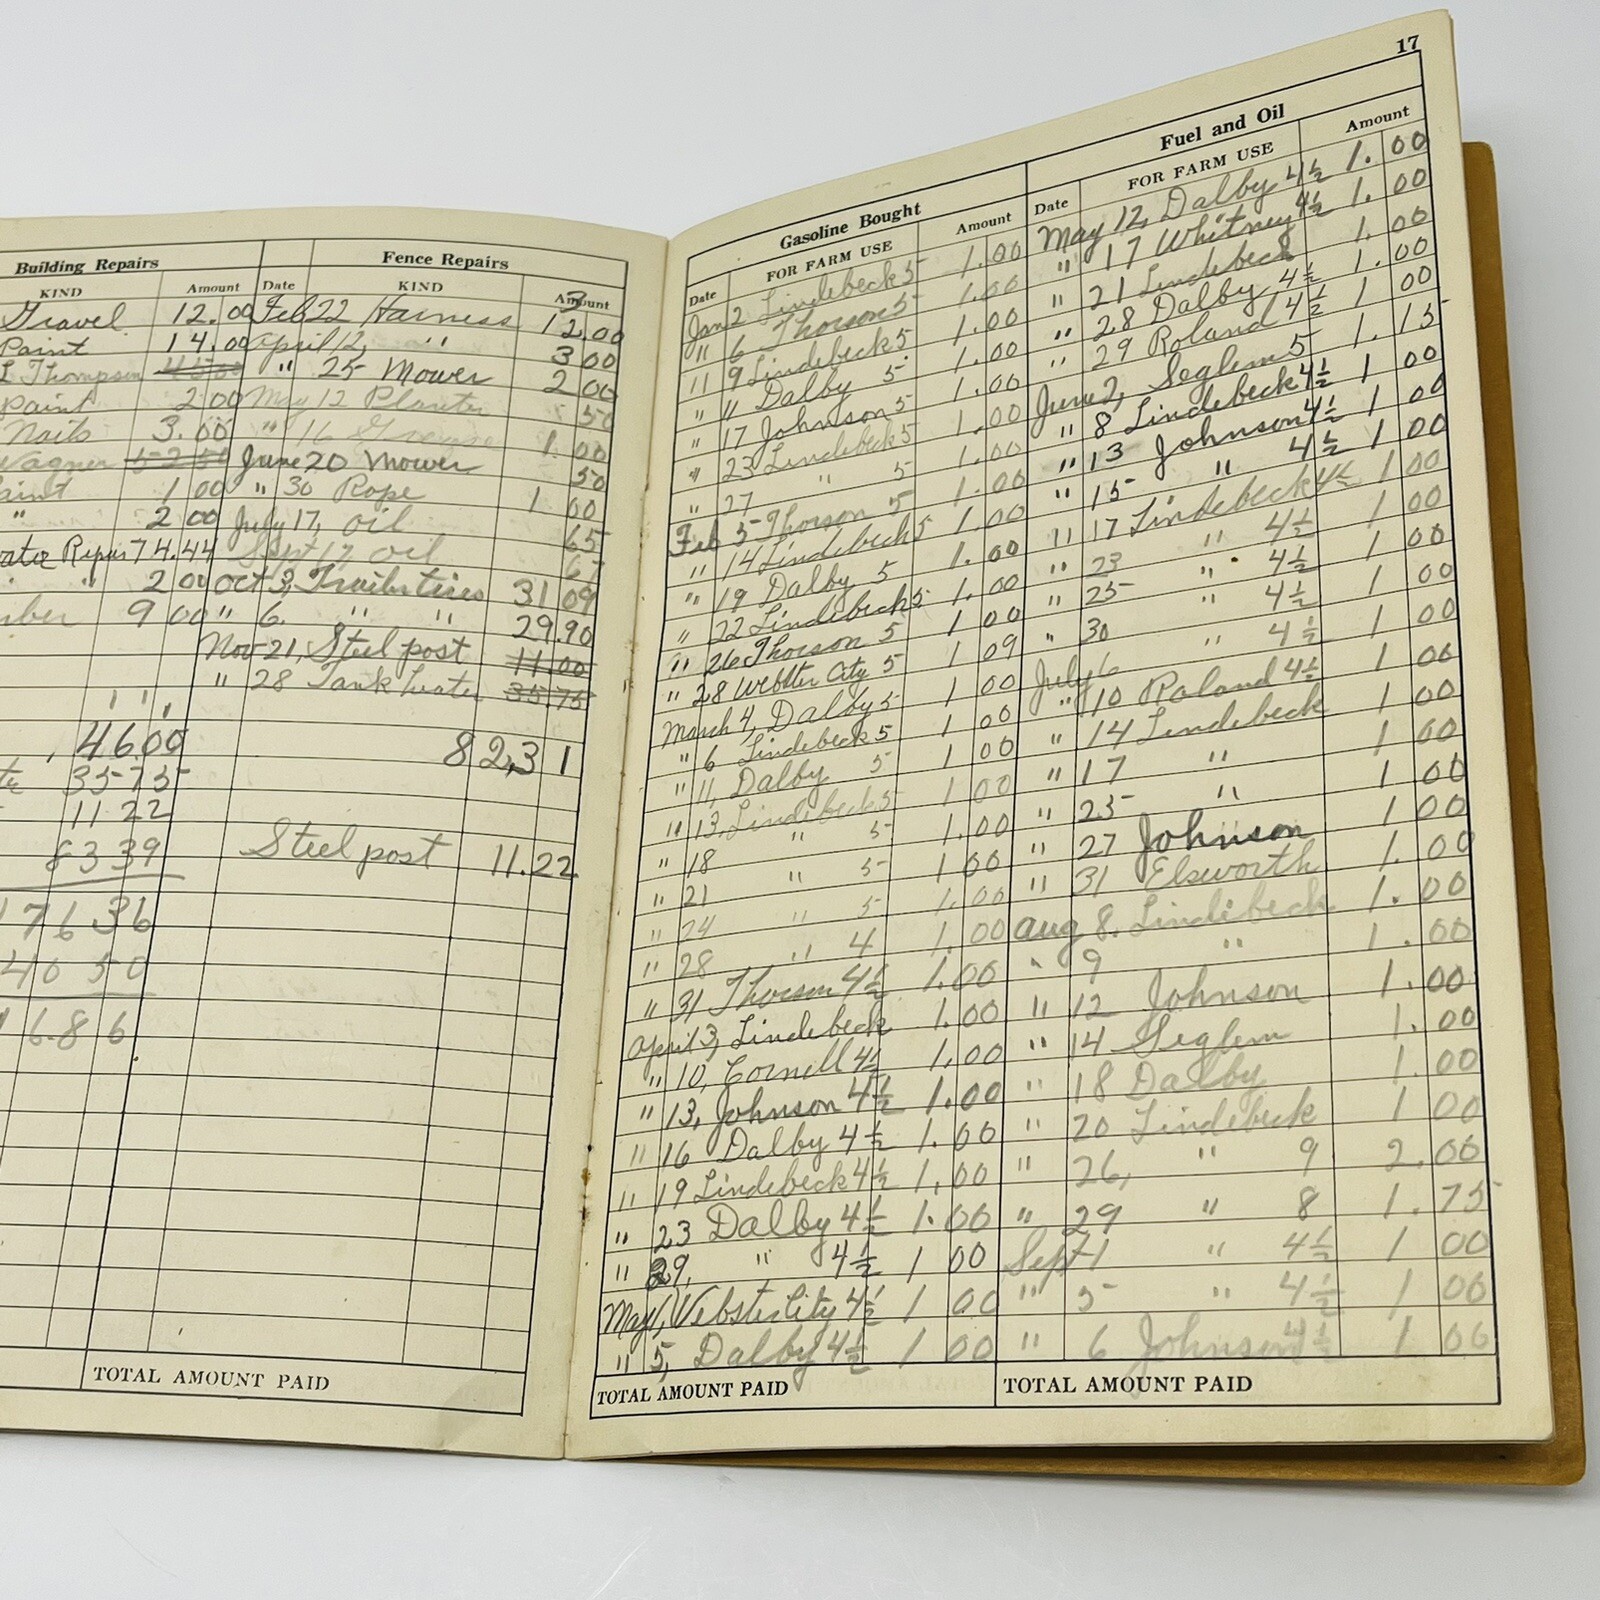 Building Repairs
KIND
Amount
Gravel 12.00
Paint 14.00
L Thompson 45 00
Paint 2 00
Nails 3.00
Wagner 52 50
Paint 1 00
" 2 00
Repair 74.44
" 2 00
9 00
46.00
35 75
11 22
83 39
176 36
40 50
6.86
TOTAL AMOUNT PAID
Fence Repairs
Date
KIND
Amount
Feb 22 Harness 12.00
April 12, " 3 00
" 25 Mower 2 00
May 12 Planter 50
" 16 Grease 1.00
June 20 Mower 50
" 30 Rope 1 00
July 17, oil 65
Sept 17 oil 67
Oct 3, Trailer tires 31 09
" 6. " " 29.90
Nov 21, Steel post 11.00
" 28 Tank heater 35.75
82,31
Steel post 11.22
17
Gasoline Bought
Date
FOR FARM USE
Amount
Jan 2 Lindebeck 5 1.00
" 6 Thorson 5 1.00
" 9 Lindebeck 5 1.00
" " Dalby 5 1.00
" 17 Johnson 5 1.00
" 23 Lindebeck 5 1.00
" 27 " 5 1.00
Feb 5 Thorson 5 1.00
" 14 Lindebeck 5 1.00
" 19 Dalby 5 1.00
" 22 Lindebeck 5 1.00
" 26 Thorson 5 1 00
" 28 Webster City 5 1 09
March 4, Dalby 5 1 00
" 6 Lindebeck 5 1 00
" 11, Dalby 5 1 00
" 13, Lindebeck 5 1 00
" 18 " 5 1.00
" 21 " 5 1 00
" 24 " 5 1.00
" 28 " 4 1.00
" 31 Thorson 4½ 1.00
April 3, Lindebeck 1.00
" 10, Cornell 4½ 1.00
" 13, Johnson 4½ 1.00
" 16 Dalby 4½ 1.00
" 19 Lindebeck 4½ 1.00
" 23 Dalby 4½ 1.00
" 29, " 4½ 1 00
May 1, Webster City 4½ 1 00
" 5, Dalby 4½ 1 00
TOTAL AMOUNT PAID
Fuel and Oil
Date
FOR FARM USE
Amount
May 12, Dalby 4½ 1.00
" 17 Whitney 4½ 1.00
" 21 Lindebeck 1.00
" 28 Dalby 4½ 1.00
" 29 Roland 4½ 1 00
June 2, Seglem 5 1.15
" 8 Lindebeck 4½ 1 00
" 13 Johnson 4½ 1 00
" 15 " 4½ 1 00
" 17 Lindebeck 4½ 1 00
" 23 " 4½ 1 00
" 25 " 4½ 1 00
" 30 " 4½ 1 00
July 6 " 4½ 1 00
" 10 Roland 4½ 1 00
" 14 Lindebeck 1 00
" 17 " 1 00
" 25 " 1 00
" 27 Johnson 1 00
" 31 Elsworth 1.00
Aug 8. Lindebeck 1.00
" 9 " 1.00
" 12 Johnson 1.00
" 14 Seglem 1.00
" 18 Dalby 1.00
" 20 Lindebeck 1 00
" 26, " 9 2.00
" 29 " 8 1.75
Sept 1 " 4½ 1 00
" 5 " 4½ 1 00
" 6 Johnson 4½ 1 00
TOTAL AMOUNT PAID